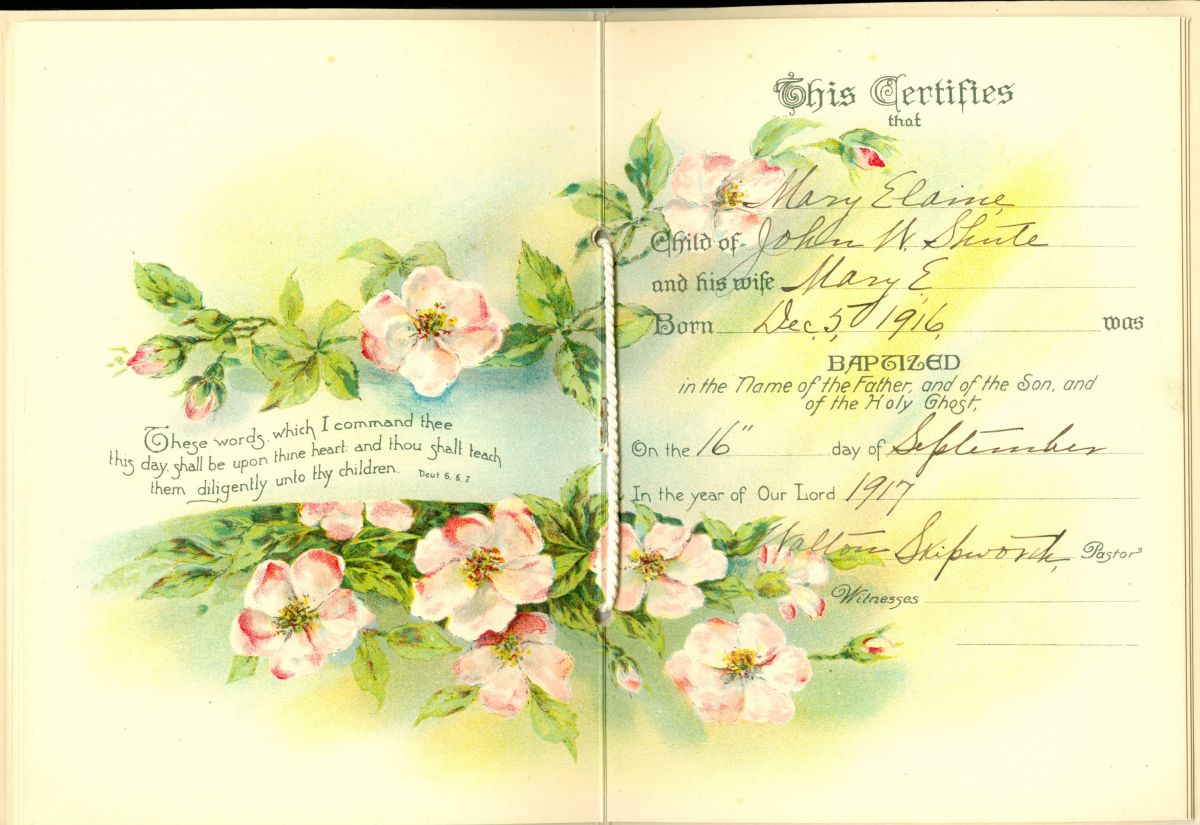 These words, which I command thee
this day, shall be upon thine heart: and thou shalt teach
them diligently unto thy children. Deut 6, 6, 7.
This Certifies
that
Mary Elaine
Child of John W. Shute
and his wife Mary E
Born Dec. 5, 1916, was
BAPTIZED
in the Name of the Father, and of the Son, and
of the Holy Ghost,
On the 16" day of September
In the year of Our Lord 1917
Walton Skipworth, Pastor
Witnesses